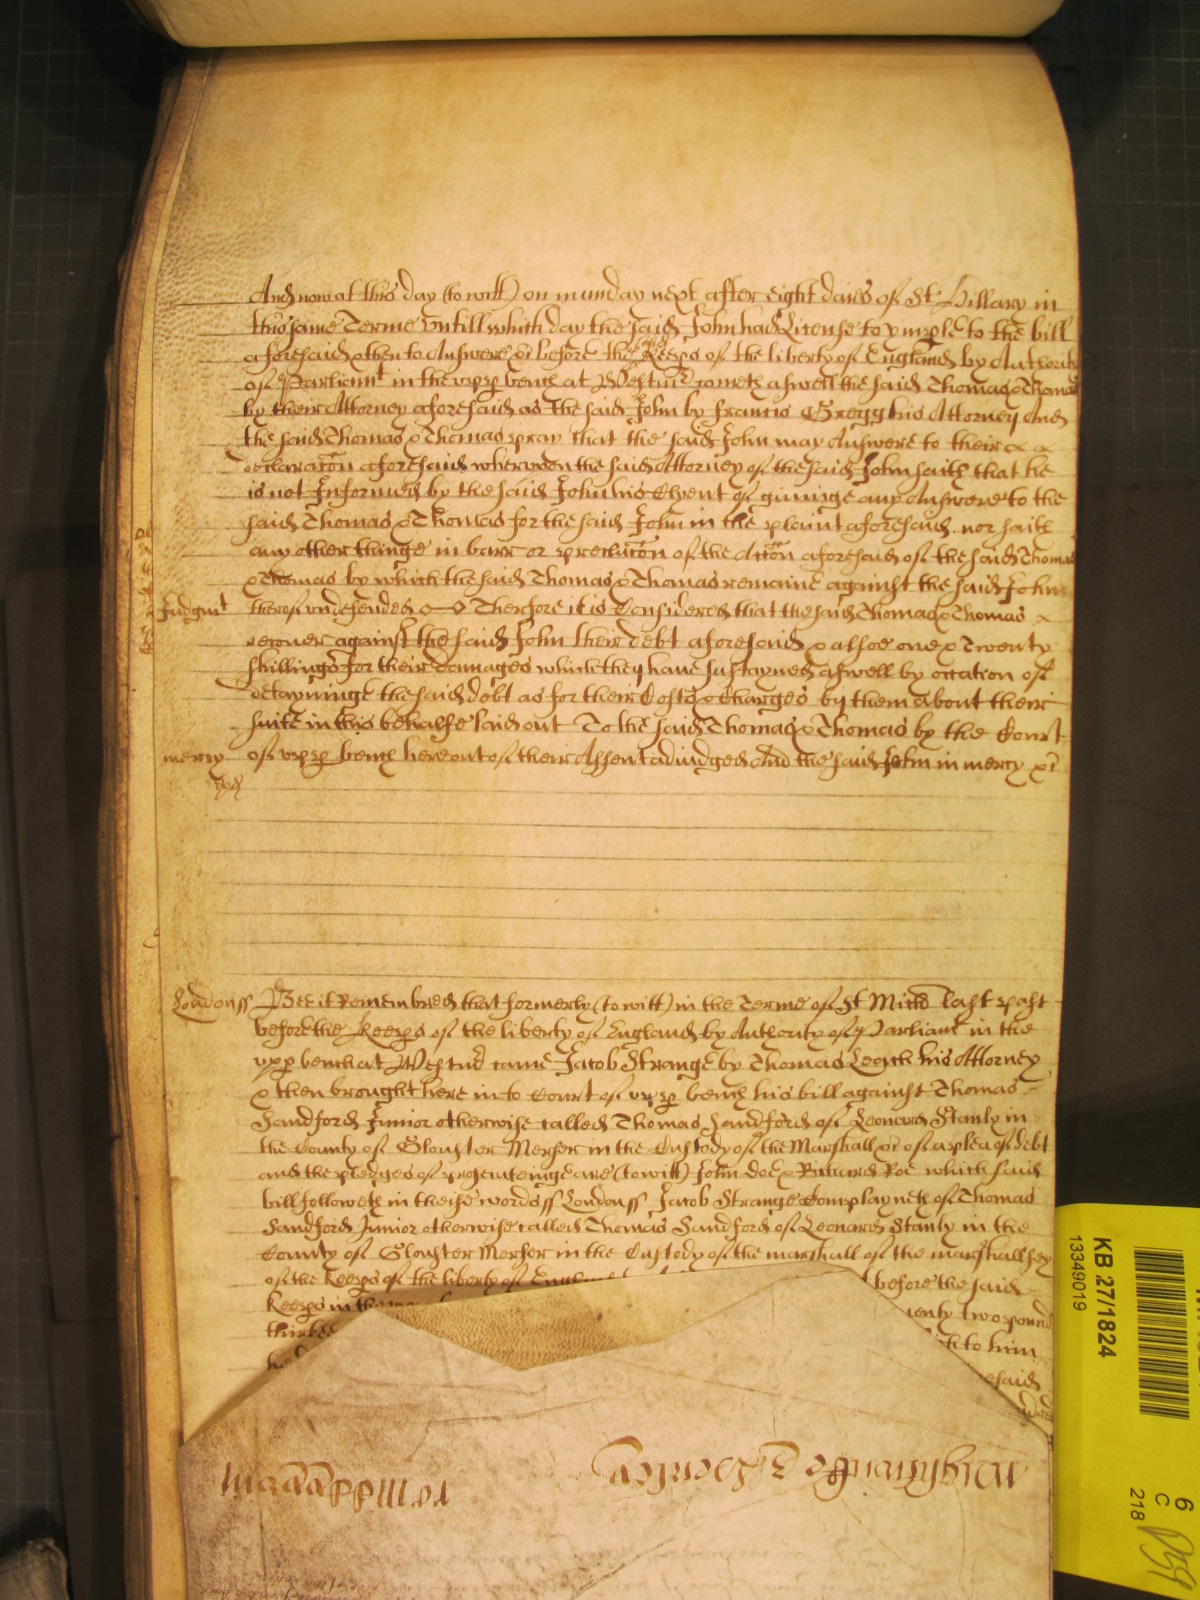 And now at this day (to witt) on munday next after eight daies of St Hillary in
this same Terme untill which day the said John had License to imple to the bill
aforesaid & then to Answere &c before the said Keeps of the liberty of England by Authority
of Parliamt in the upp bench at Westmr cometh aswell the said Thomas & Thomas
by their Attorney aforesaid as the said John by Francis Gregg his Attorney And
the said Thomas & Thomas pray that the said John may Answere to their
declaracon aforesaid whereupon the said Attorney of the said John saith that he
is not Informed by the said John his Clyent of givinge any Answere to the
said Thomas & Thomas for the said John in the plaint aforesaid nor saith
any other thinge in barr or preclucon of the Accon aforesaid of the said Thomas
& Thomas by which the said Thomas & Thomas remaine against the said John
Judgmt therof undefended Therfore it is Considered that the said Thomas & Thomas
recover against the said John their debt aforesaid & alsoe one & Twenty
shillings for their damages which they have sustayned aswell by occation of
detayninge the said debt as for their Costs & Charges by them about their
suite in this behalfe laid out To the said Thomas & Thomas by the Court
mercy of upp bench here out of their Assent adiudged And the said John in mercy &c
London ss Bee it Remembred that formerly (to witt) in the Terme of St Mich last past
before the Keeps of the liberty of England by Authority of Parliamt in the
upp bench at Westmr came Jacob Strange by Thomas Leech his Attorney
& then brought here into Court of upp bench his bill against Thomas
Sandford Junior otherwise called Thomas Sandford of Leonard Stanly in
the County of Glouster Merser in the Custody of the Marshall &c of a plea of debt
and the pledges of prosenteinge are (to witt) John Doe & Richard Roe which said
bill followeth in theise words ss London ss Jacob Strange Complayneth of Thomas
Sandford Junior otherwise called Thomas Sandford of Leonard Stanly in the
County of Glouster Merser in the Custody of the marshall of the marshallsey
of the Keeps of the liberty of England before the said
Keeps in the twenty two pound
to him
KB 27/1824
13349019
6
C
218